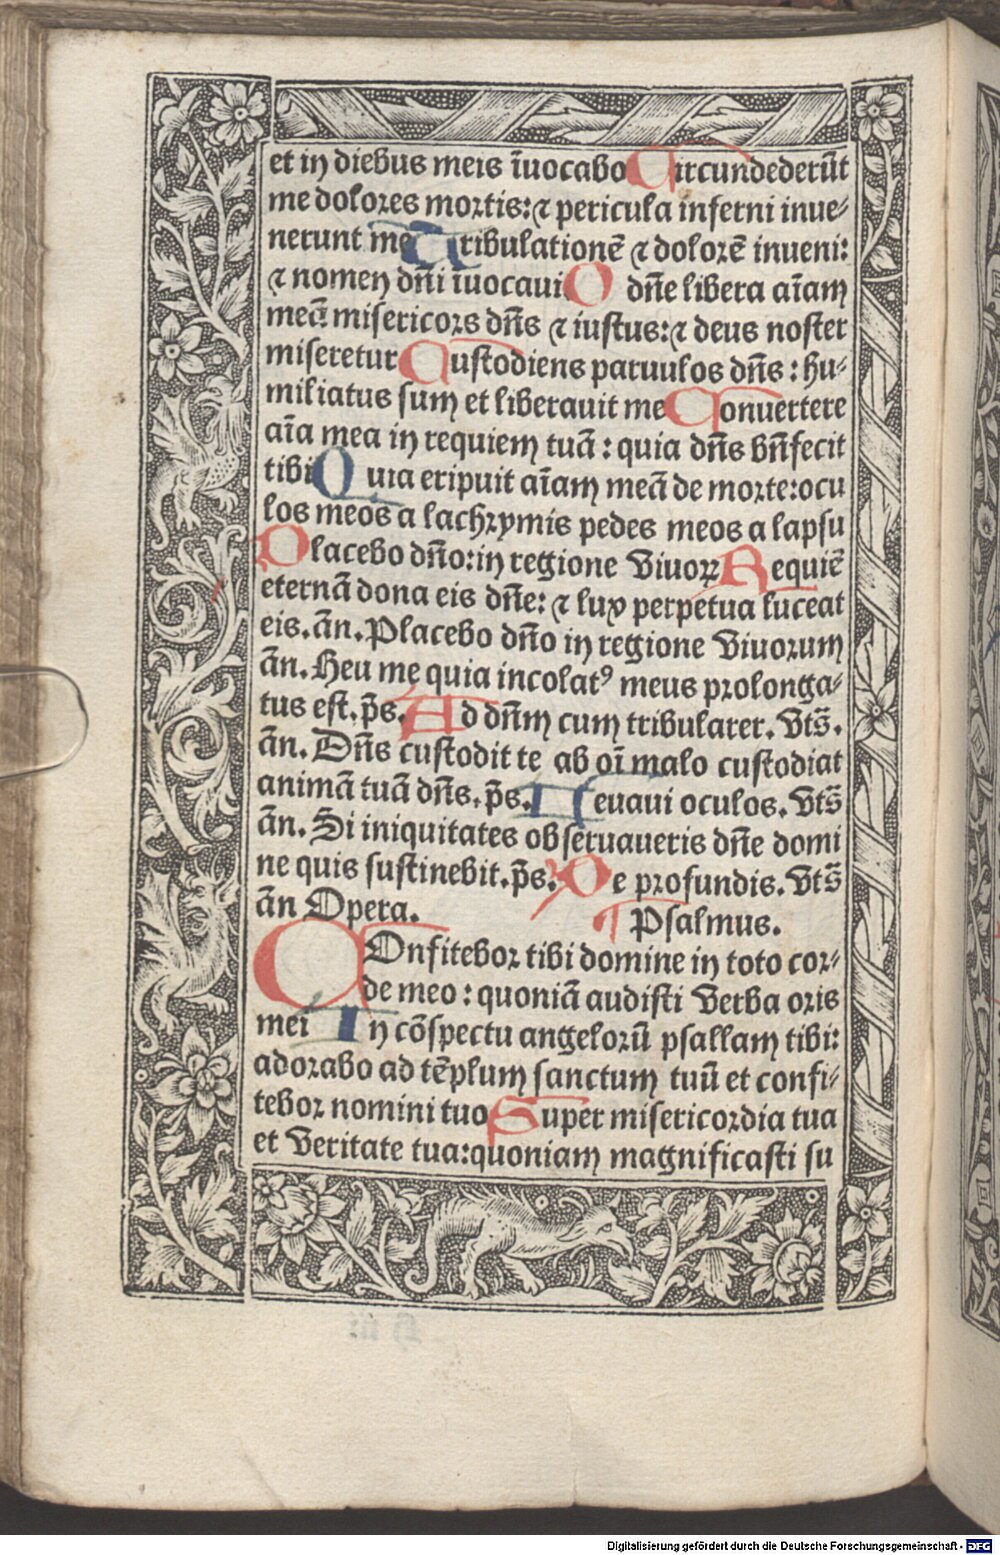 et in diebus meis īuocabo Circundederūt
me dolores mortis: ⁊ pericula inferni inue⸗
nerunt me Tribulationē ⁊ dolorē inueni:
⁊ nomen dn̄i iuocaui O dn̄e libera aīam
meā misericors dn̄s ⁊ iustus: ⁊ deus noster
miseretur Custodiens paruulos dn̄s : hu⸗
miliatus sum et liberauit me Conuertere
aīa mea in requiem tuā : quia dn̄s bn̄fecit
tibi Quia eripuit aīam meā de morte: ocu
los meos a lachrymis pedes meos a lapsu
Placebo dn̄o: in regione viuoꝝ Requiē
eternā dona eis dn̄e: ⁊ lux perpetua luceat
eis. ān. Placebo dn̄o in regione viuorum
ān. Heu me quia incolatꝰ meus prolonga⸗
tus est. p̄s. Ad dn̄m cum tribularer. vts̄.
ān. Dn̄s custodit te ab oī malo custodiat
animā tuā dn̄s. p̄s. Leuaui oculos. vts̄
ān. Si iniquitates obseruaueris dn̄e domi
ne quis sustinebit. p̄s. De profundis. vts̄
ān Opera. Psalmus.
COnfitebor tibi domine in toto cor⸗
de meo : quoniā audisti verba oris
mei In cōspectu angelorū psallam tibi:
adorabo ad tēplum sanctum tuū et confi⸗
tebor nomini tuo Super misericordia tua
et veritate tua: quoniam magnificasti su
Digitalisierung gefördert durch die Deutsche Forschungsgemeinschaft - DFG